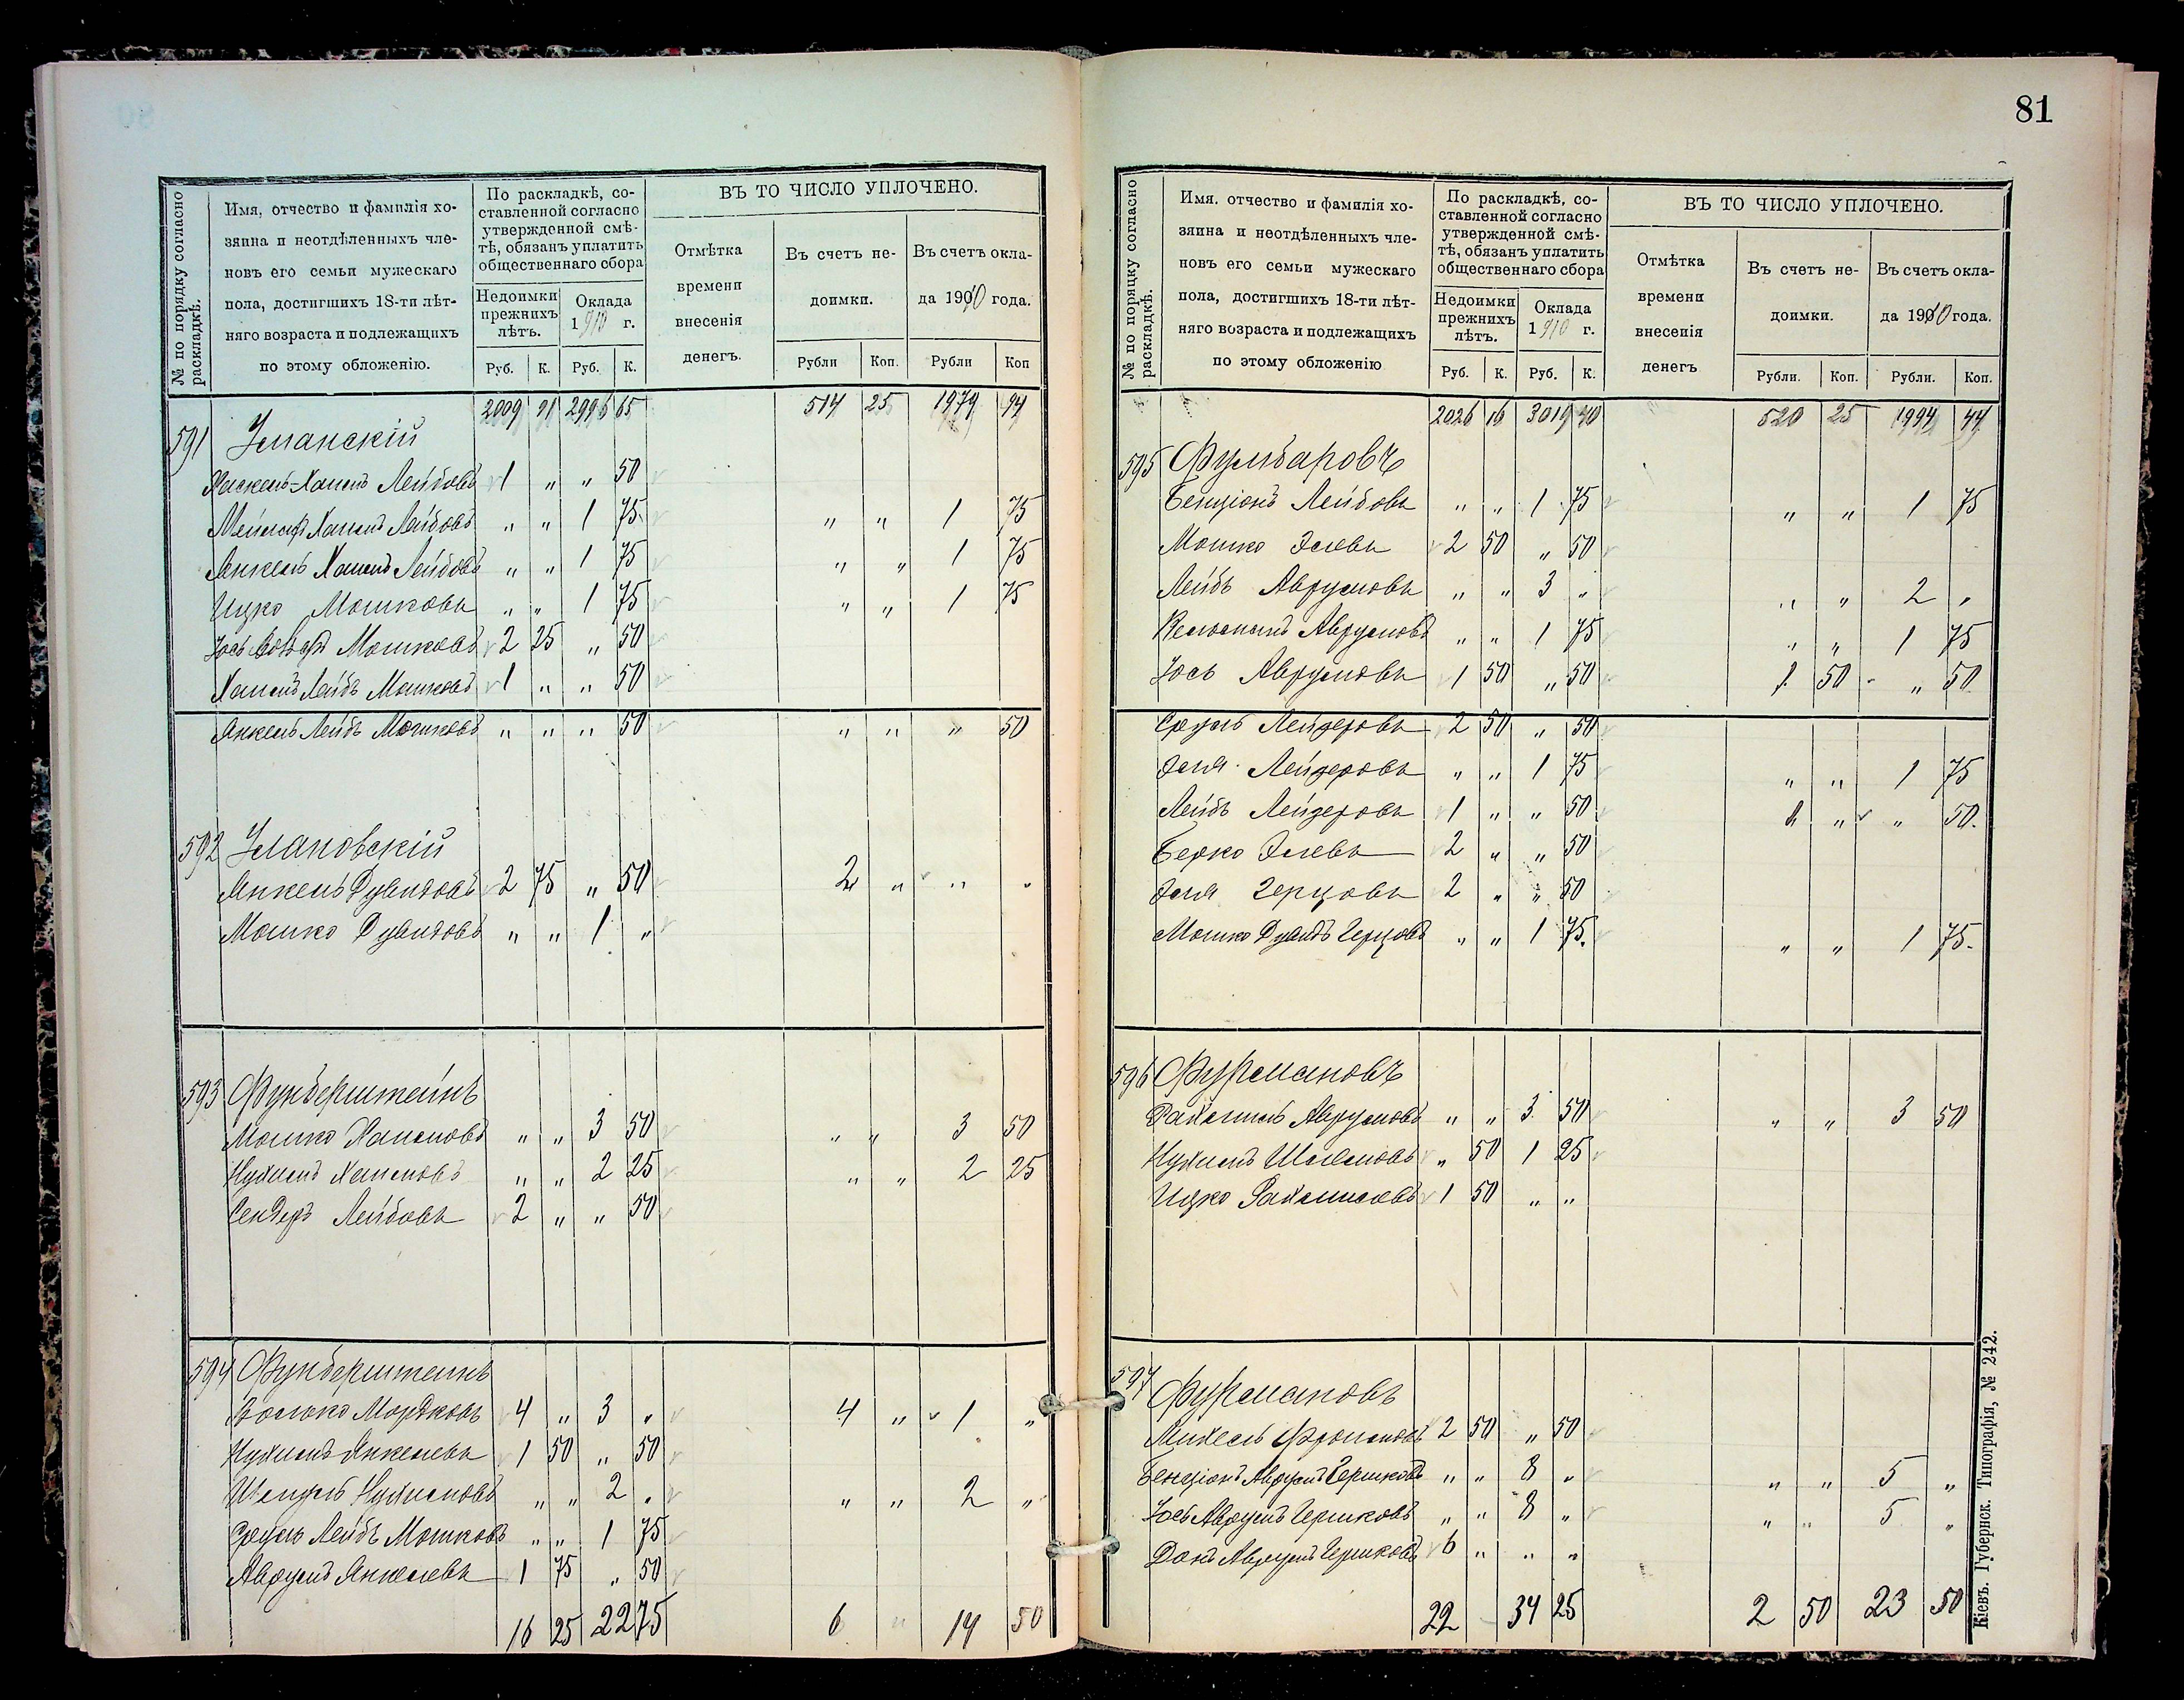 № по порядку согласно раскладкѣ.
Имя, отчество и фамилія хо-
зяина и неотдѣленныхъ чле-
новъ его семьи мужескаго
пола, достигшихъ 18-ти лѣт-
няго возраста и подлежащихъ
по этому обложенію.
По раскладкѣ, со-
ставленной согласно
утвержденной смѣ-
тѣ, обязанъ уплатить
общественнаго сбора
Недоимки прежнихъ лѣтъ.
Оклада 1910 г.
Руб. К. Руб. К.
ВЪ ТО ЧИСЛО УПЛОЧЕНО.
Отмѣтка времени внесенія денегъ.
Въ счетъ не-
доимки.
Въ счетъ окла-
да 1910 года.
Рубли Коп. Рубли Коп
2009 91 2996 65 514 25 1979 94
591 Уманскій
Хаскель-Хаимъ Лейбовъ 1 „ „ 50
Хаимъ Лейбовъ „ „ 1 75 „ „ 1 75
Янкель Хаимъ Лейбовъ „ „ 1 75 „ „ 1 75
Ицко Мошковъ „ „ 1 75 „ „ 1 75
Мошковъ 2 25 „ 50
Хаимъ Лейбъ Мошковъ 1 „ „ 50
Янкель Лейбъ Мошковъ „ „ „ 50 „ „ „ 50
592 Улановскій
Янкель Дувидовъ 2 75 „ 50 2 „ „ „
Мошко Дувидовъ „ „ 1 „
593 Фукберштейнъ
Мошко Хаимовъ „ „ 3 50 „ „ 3 50
Нухимъ Хаимовъ „ „ 2 25 „ „ 2 25
Сендеръ Лейбовъ 2 „ „ 50
594 Фукберштейнъ
Волько Мордковъ 4 „ 3 „ 4 „ 1 „
Нухимъ Янкелевъ 1 50 „ 50
Шмуль Нухимовъ „ „ 2 „ „ „ 2 „
Сруль Лейбъ Мошковъ „ „ 1 75
Аврумъ Янкелевъ 1 75 „ 50
16 25 22 75 6 „ 14 50
81
№ по порядку согласно раскладкѣ.
Имя. отчество и фамилія хо-
зяина и неотдѣленныхъ чле-
новъ его семьи мужескаго
пола, достигшихъ 18-ти лѣт-
няго возраста и подлежащихъ
по этому обложенію
По раскладкѣ, со-
ставленной согласно
утвержденной смѣ-
тѣ, обязанъ уплатить
общественнаго сбора
Недоимки прежнихъ лѣтъ.
Оклада 1910 г.
Руб. К. Руб. К.
ВЪ ТО ЧИСЛО УПЛОЧЕНО.
Отмѣтка времени внесенія денегъ
Въ счетъ не-
доимки.
Въ счетъ окла-
да 1910 года.
Рубли. Коп. Рубли. Коп.
2026 16 3019 40 520 25 1994 44
595 Фульбаровъ
Бенціонъ Лейбовъ „ „ 1 75 „ „ 1 75
Мошко Элевъ 2 50 „ 50
Лейбъ Аврумовъ „ „ 3 „ „ „ 2 „
Кельманъ Аврумовъ „ „ 1 75 „ „ 1 75
Іось Аврумовъ 1 50 „ 50 1 50 „ 50
Сруль Лейзеровъ 2 50 „ 50
Эля Лейзеровъ „ „ 1 75 „ „ 1 75
Лейбъ Лейзеровъ 1 „ „ 50 1 „ „ 50.
Берко Элевъ 2 „ „ 50
Эля Герцовъ 2 „ „ 50
Мошко Дувидъ Герцовъ „ „ 1 75. „ „ 1 75.
596 Фурмановъ
Рахмиль Аврумовъ „ „ 3 50 „ „ 3 50
Нухимъ Шлемовъ „ 50 1 25
Ицко Рахмилевъ 1 50 „ „
597 Фурмановъ
Михель Фроимовъ 2 50 „ 50
Бенціонъ Аврумъ Гершковъ „ „ 8 „ „ „ 5 „
Іось Аврумъ Гершковъ „ „ 8 „ „ „ 5 „
Данъ Аврумъ Гершковъ 6 „ „ „
22 - 34 25 2 50 23 50
Кіевъ. Губернск. Типографія, № 242.